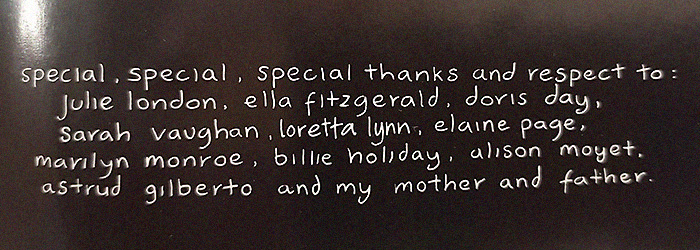 special, special, special thanks and respect to:
julie london, ella fitzgerald, doris day,
sarah vaughan, loretta lynn, elaine page,
marilyn monroe, billie holiday, alison moyet,
astrud gilberto and my mother and father.